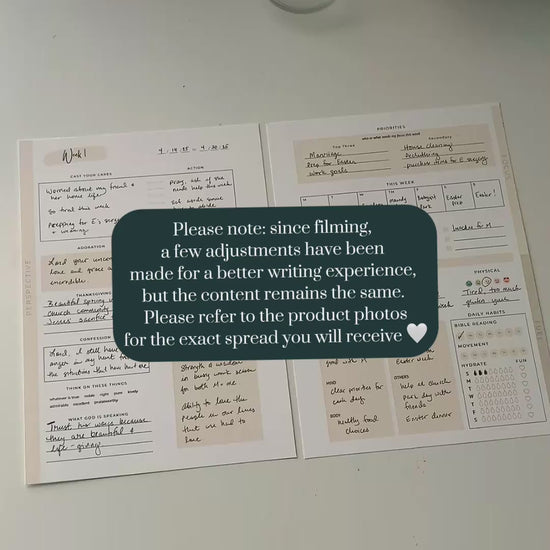 Week 1
4.14.25 - 4.20.25
CAST YOUR CARES
ACTION
Worried about my friend &
her home life
Pray, ask if she
needs help this week
So tired this week
Set aside some
Prepping for E's surgery
ADORATION
Lord your uncon
love and grace a
incredible.
THANKSGIVING
Beautiful spring w
church community
Jesus' sacrifice
CONFESSION
Lord, I still have
anger in my heart
the situations that have hurt me
THINK ON THESE THINGS
whatever is true noble right pure lovely
admirable excellent praiseworthy
WHAT GOD IS SPEAKING
Trust his ways because
they are beautiful &
life-giving
Strength & wisdom
in busy work season
for both M & me
Ability to love the
people in our lives
that are hard to
love
PERSPECTIVE
PRIORITIES
who or what needs my focus this week
Top Three
Secondary
Marriage
Prep for Easter
work goals
House cleaning
Decluttering
THIS WEEK
M
T
W
T
F
S
S
Easter
prep
Easter!
Lunch for M
Please note: since filming,
a few adjustments have been
made for a better writing experience,
but the content remains the same.
Please refer to the product photos
for the exact spread you will receive 🤍
PHYSICAL
Tired, too much
DAILY HABITS
BIBLE READING
MOVEMENT
HYDRATE
FUN
S
M
T
W
T
F
S
MIND
clear priorities for
each day
BODY
healthy food
choices
OTHERS
help at church
park day with
friends
Easter dinner